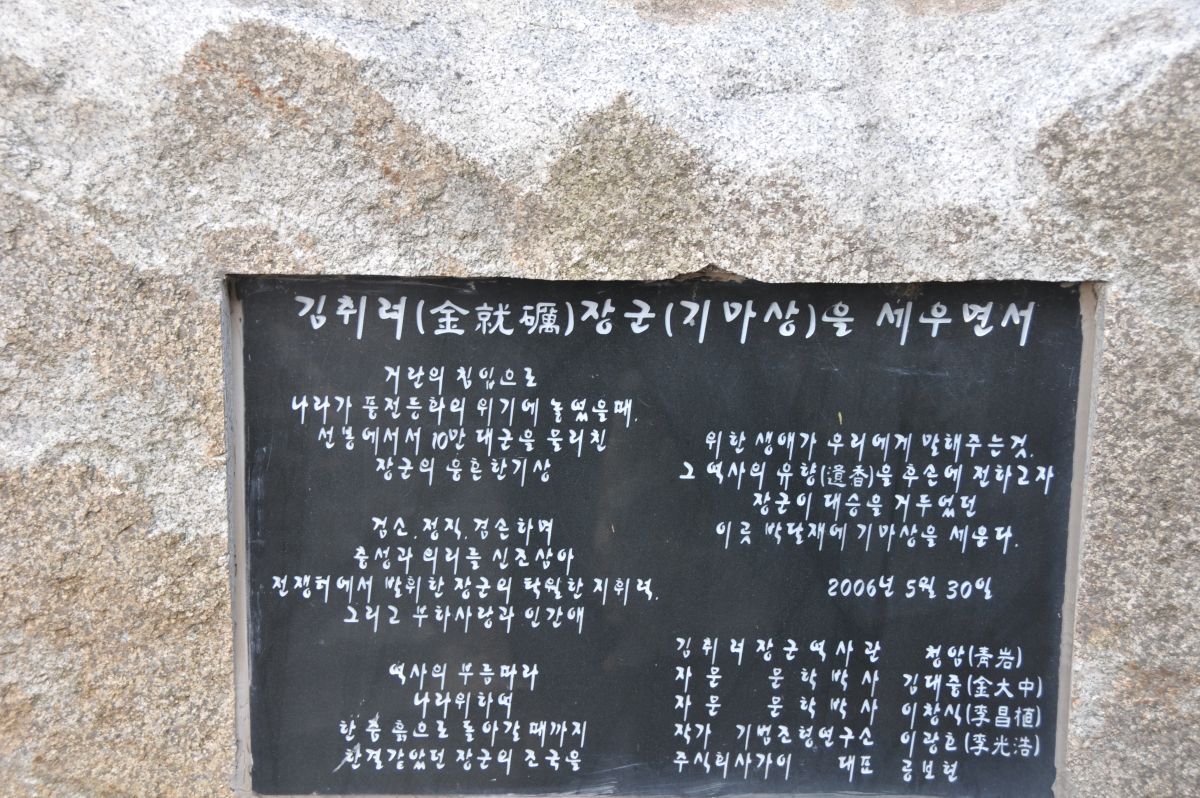 김취려(金就礪)장군(기마상)을 세우면서
거란의 침입으로
나라가 풍전등화의 위기에 놓였을때,
선봉에서서 10만 대군을 물리친
장군의 웅혼한기상
검소, 정직, 겸손하며
충성과 의리를 신조삼아
전쟁터에서 발휘한 장군의 탁월한 지휘력,
그리고 부하사랑과 인간애
역사의 부름따라
나라위하여
한줌 흙으로 돌아갈 때까지
한결같았던 장군의 조국을
위한 생애가 우리에게 말해주는것,
그 역사의 유향(遺香)을 후손에 전하고자
장군이 대승을 거두었던
이곳 박달재에 기마상을 세운다.
2006년 5월 30일
김취려장군역사관 청암(靑岩)
자문 문학박사 김대중(金大中)
자문 문학박사 이창식(李昌植)
작가 기범조형연구소 이광호(李光浩)
주식회사가이 대표 공보현